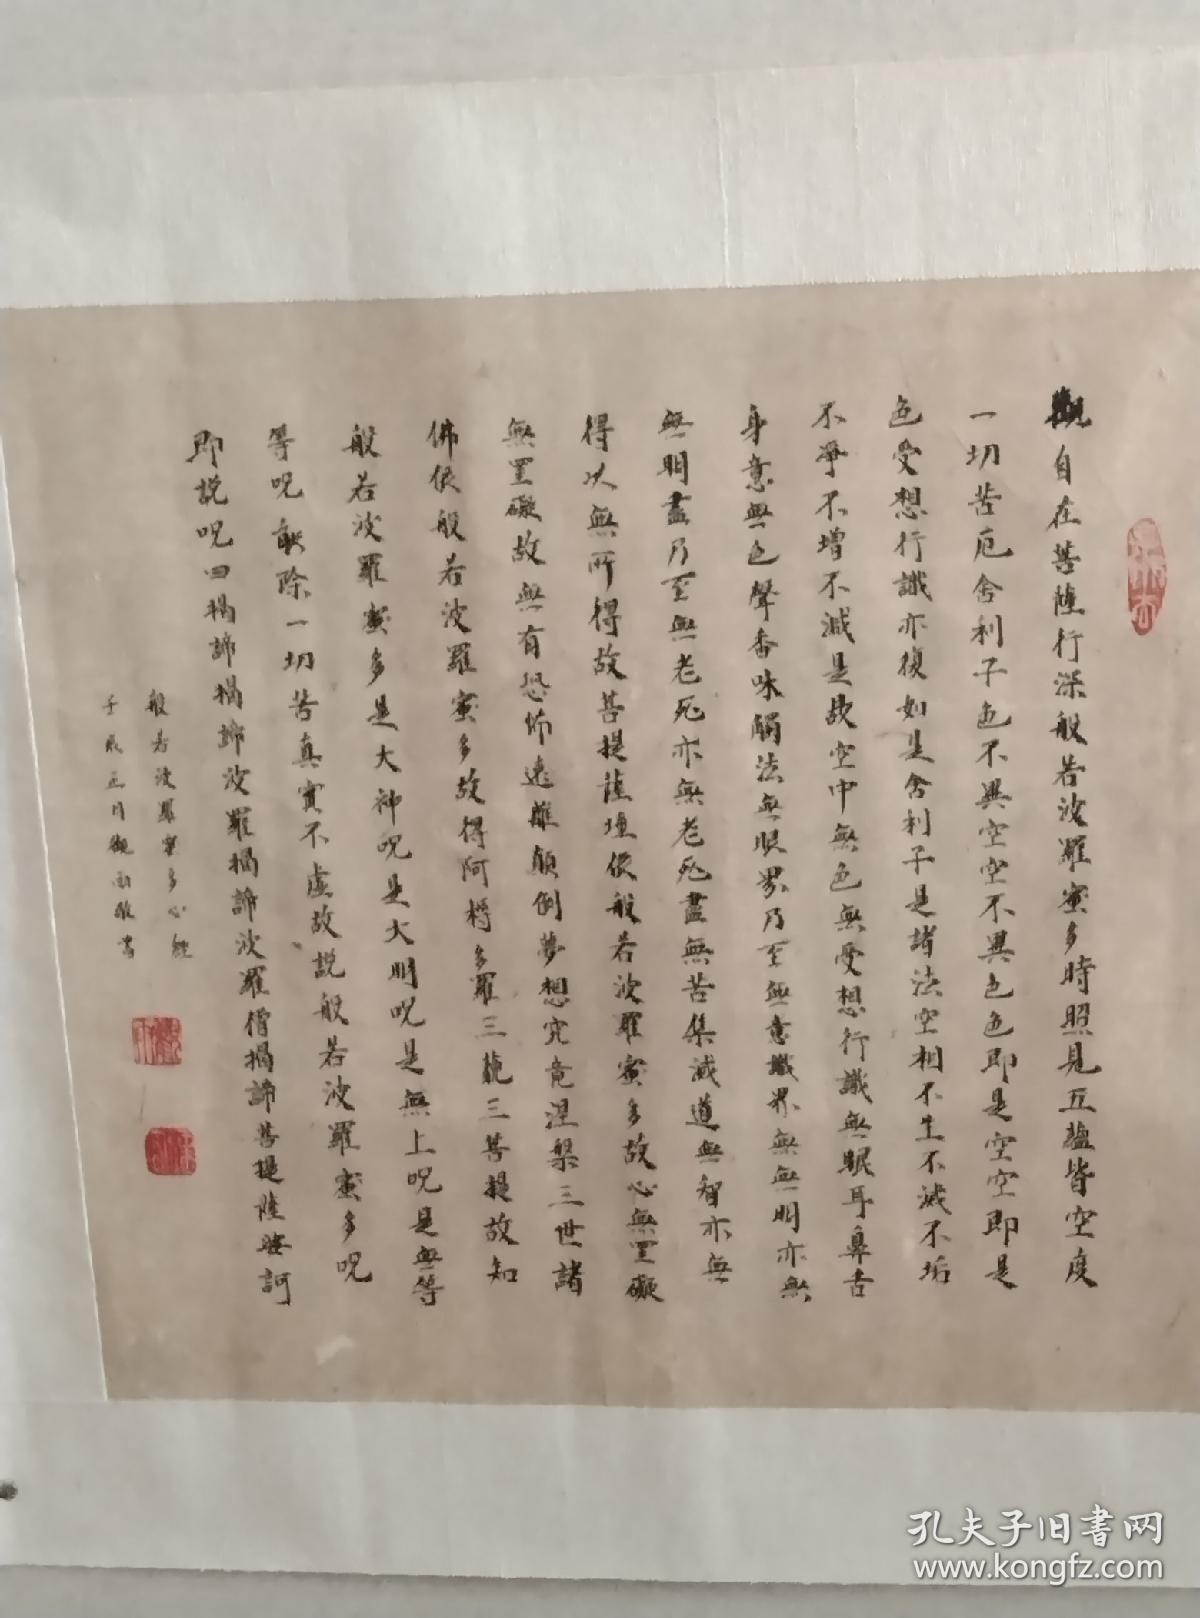 觀自在菩薩行深般若波羅蜜多時照見五蘊皆空度
一切苦厄舍利子色不異空空不異色色即是空空即是
色受想行識亦復如是舍利子是諸法空相不生不滅不垢
不凈不增不減是故空中無色無受想行識無眼耳鼻舌
身意無色聲香味觸法無眼界乃至無意識界無無明亦無
無明盡乃至無老死亦無老死盡無苦集滅道無智亦無
得以無所得故菩提薩埵依般若波羅蜜多故心無罣礙
無罣礙故無有恐怖遠離顛倒夢想究竟涅槃三世諸
佛依般若波羅蜜多故得阿耨多羅三藐三菩提故知
般若波羅蜜多是大神呪是大明呪是無上呪是無等
等呪能除一切苦真實不虛故說般若波羅蜜多呪
即說呪曰揭諦揭諦波羅揭諦波羅僧揭諦菩提薩婆訶
般若波羅蜜多心經
壬辰正月觀雨敬書
孔夫子旧书网
www.kongfz.com